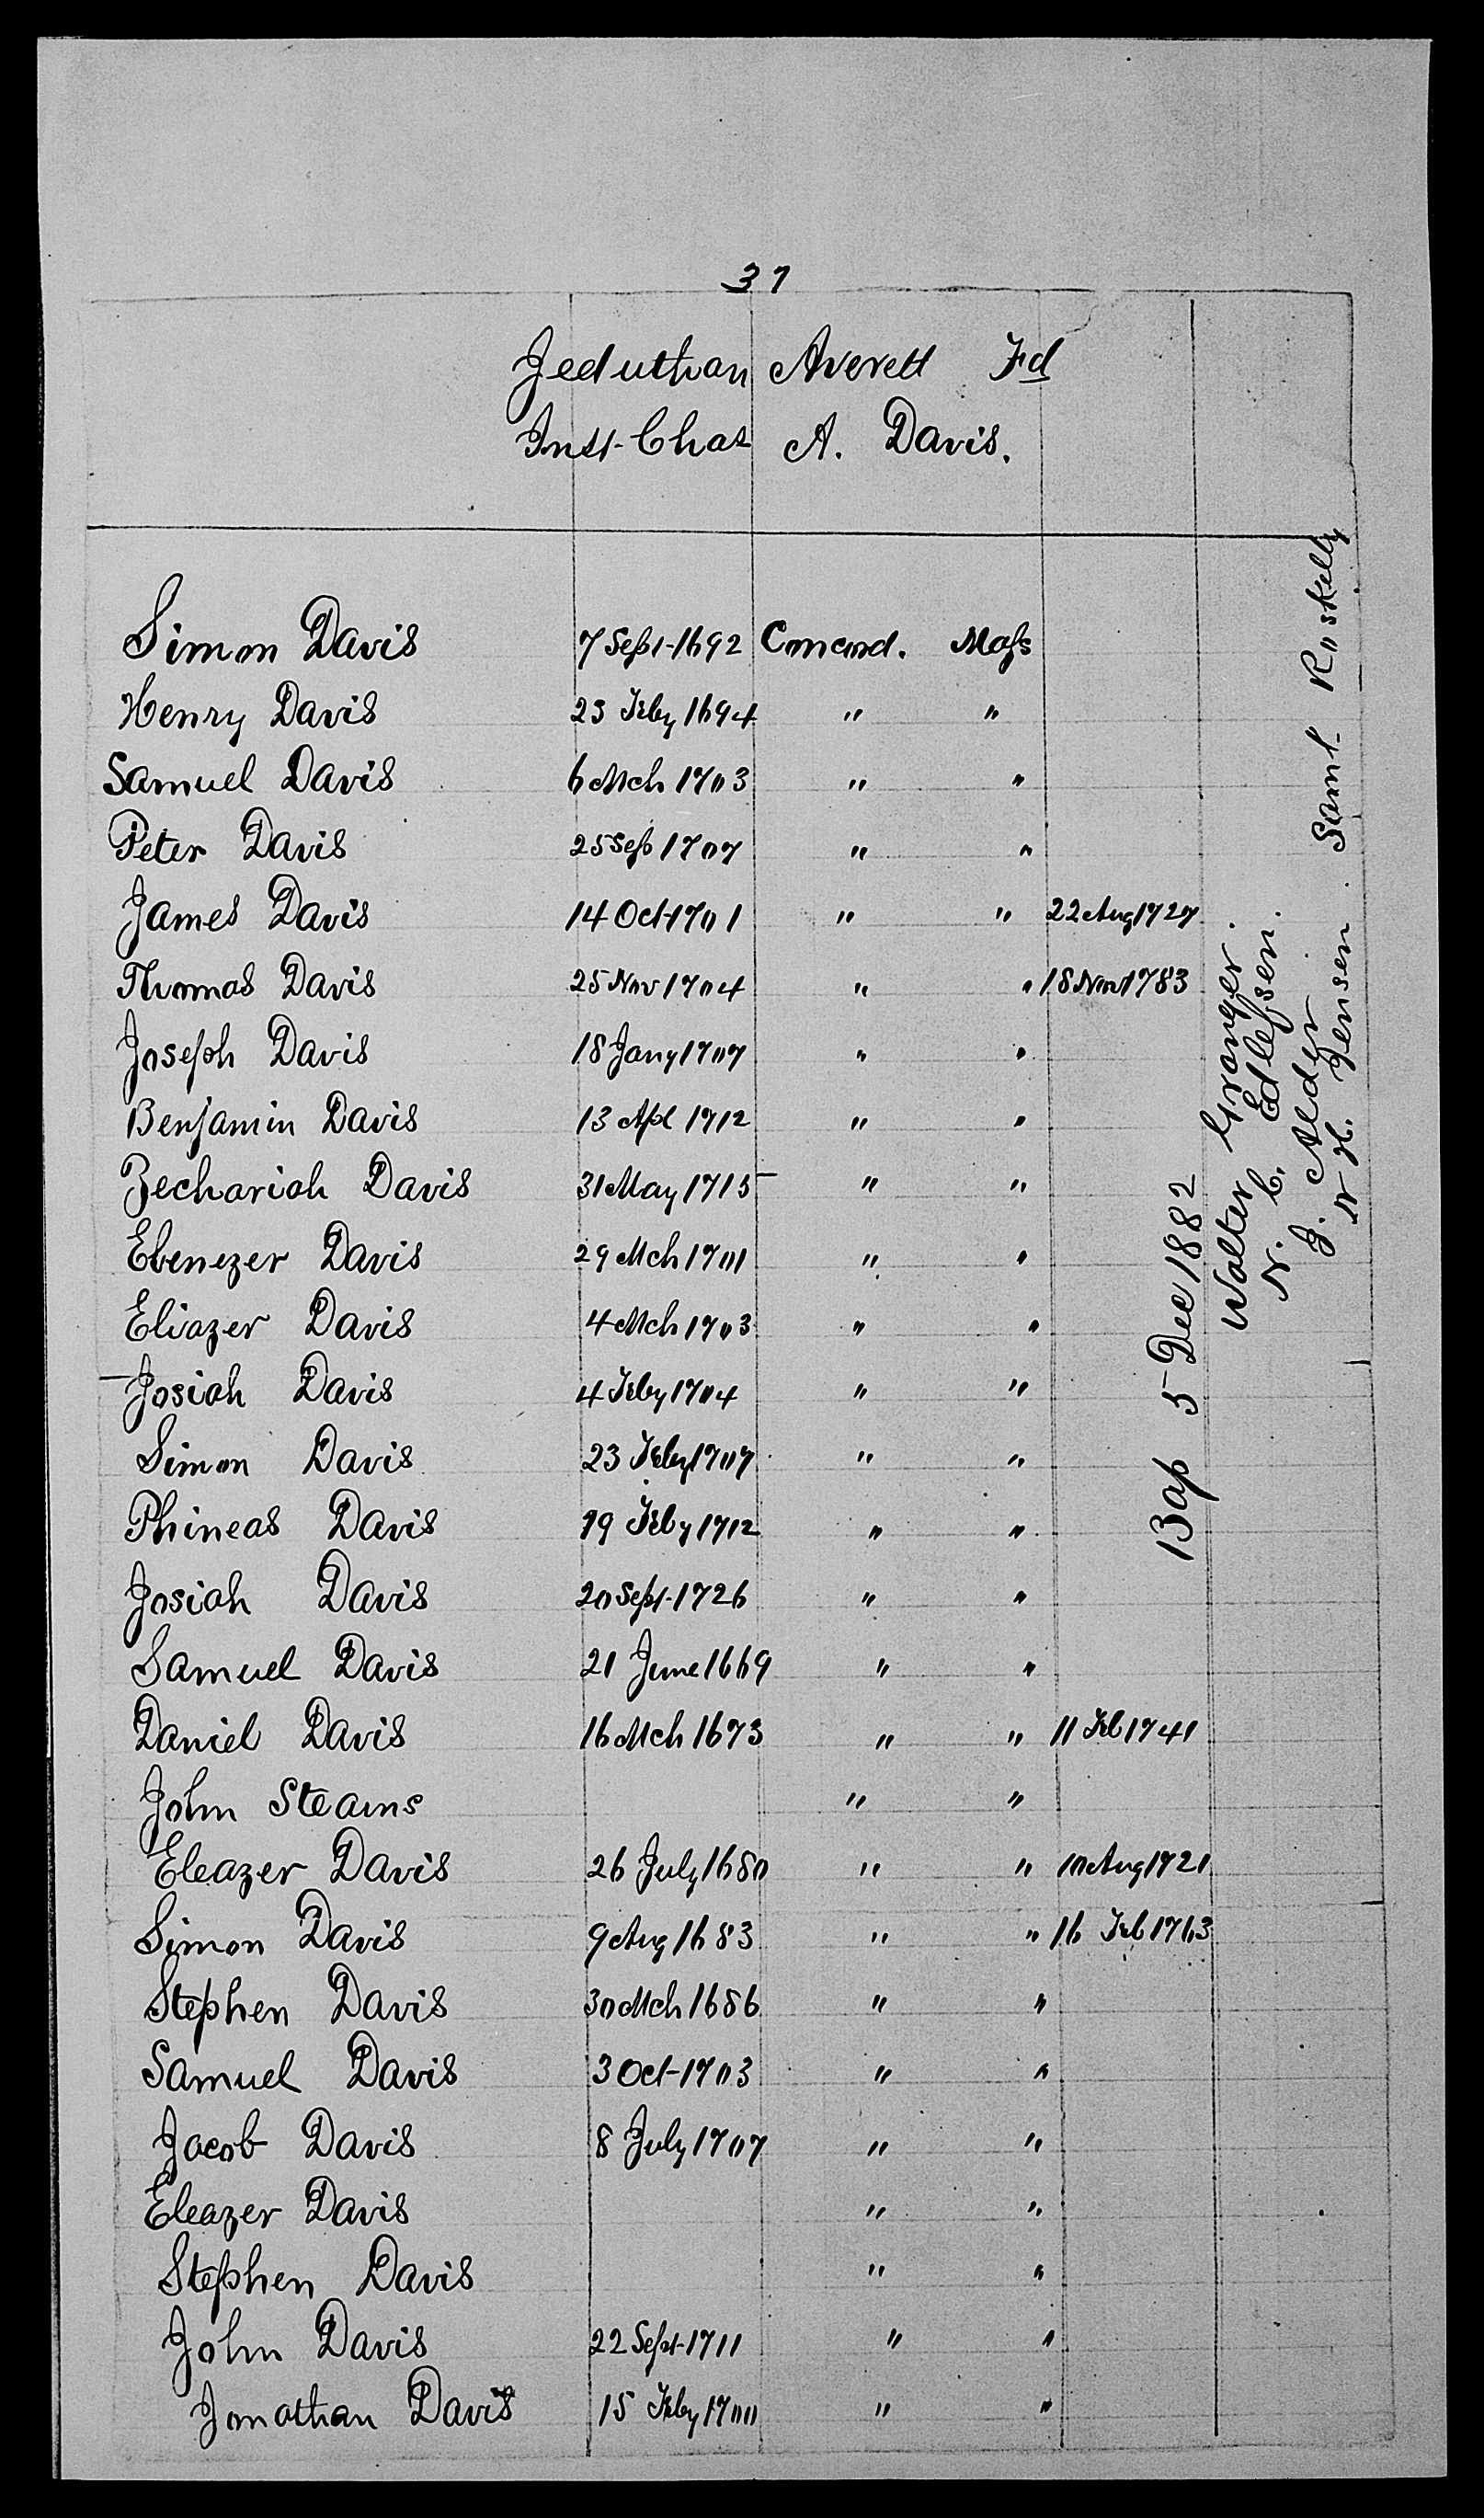 37
Jeduthan Averett Fd
Inst. Chas A. Davis.
Simon Davis 7 Sept 1692 Concord. Mass
Henry Davis 23 Feby 1694 " "
Samuel Davis 6 Mch 1703 " "
Peter Davis 25 Sep 1707 " "
James Davis 14 Oct 1701 " " 22 Aug 1727
Thomas Davis 25 Nov 1704 " " 18 Nov 1783
Joseph Davis 18 Jany 1707 " "
Benjamin Davis 13 Apl 1712 " "
Zechariah Davis 31 May 1715 " "
Ebenezer Davis 29 Mch 1701 " "
Eliazer Davis 4 Mch 1703 " "
Josiah Davis 4 Feby 1704 " "
Simon Davis 23 Feby 1707 " "
Phineas Davis 19 Feby 1712 " "
Josiah Davis 20 Sept. 1726 " "
Samuel Davis 21 June 1669 " "
Daniel Davis 16 Mch 1673 " " 11 Feb 1741
John Stearns " "
Eleazer Davis 26 July 1680 " " 10 Aug 1721
Simon Davis 9 Aug 1683 " " 16 Feb 1763
Stephen Davis 30 Mch 1686 " "
Samuel Davis 3 Oct 1703 " "
Jacob Davis 8 July 1707 " "
Eleazer Davis " "
Stephen Davis " "
John Davis 22 Sept 1711 " "
Jonathan Davis 15 Feby 1700 " "
Bap 5 Dec 1882
Walter Granger.
N. C. Edlefsen.
J. Alder
N H. Jensen.
Saml Roskelly